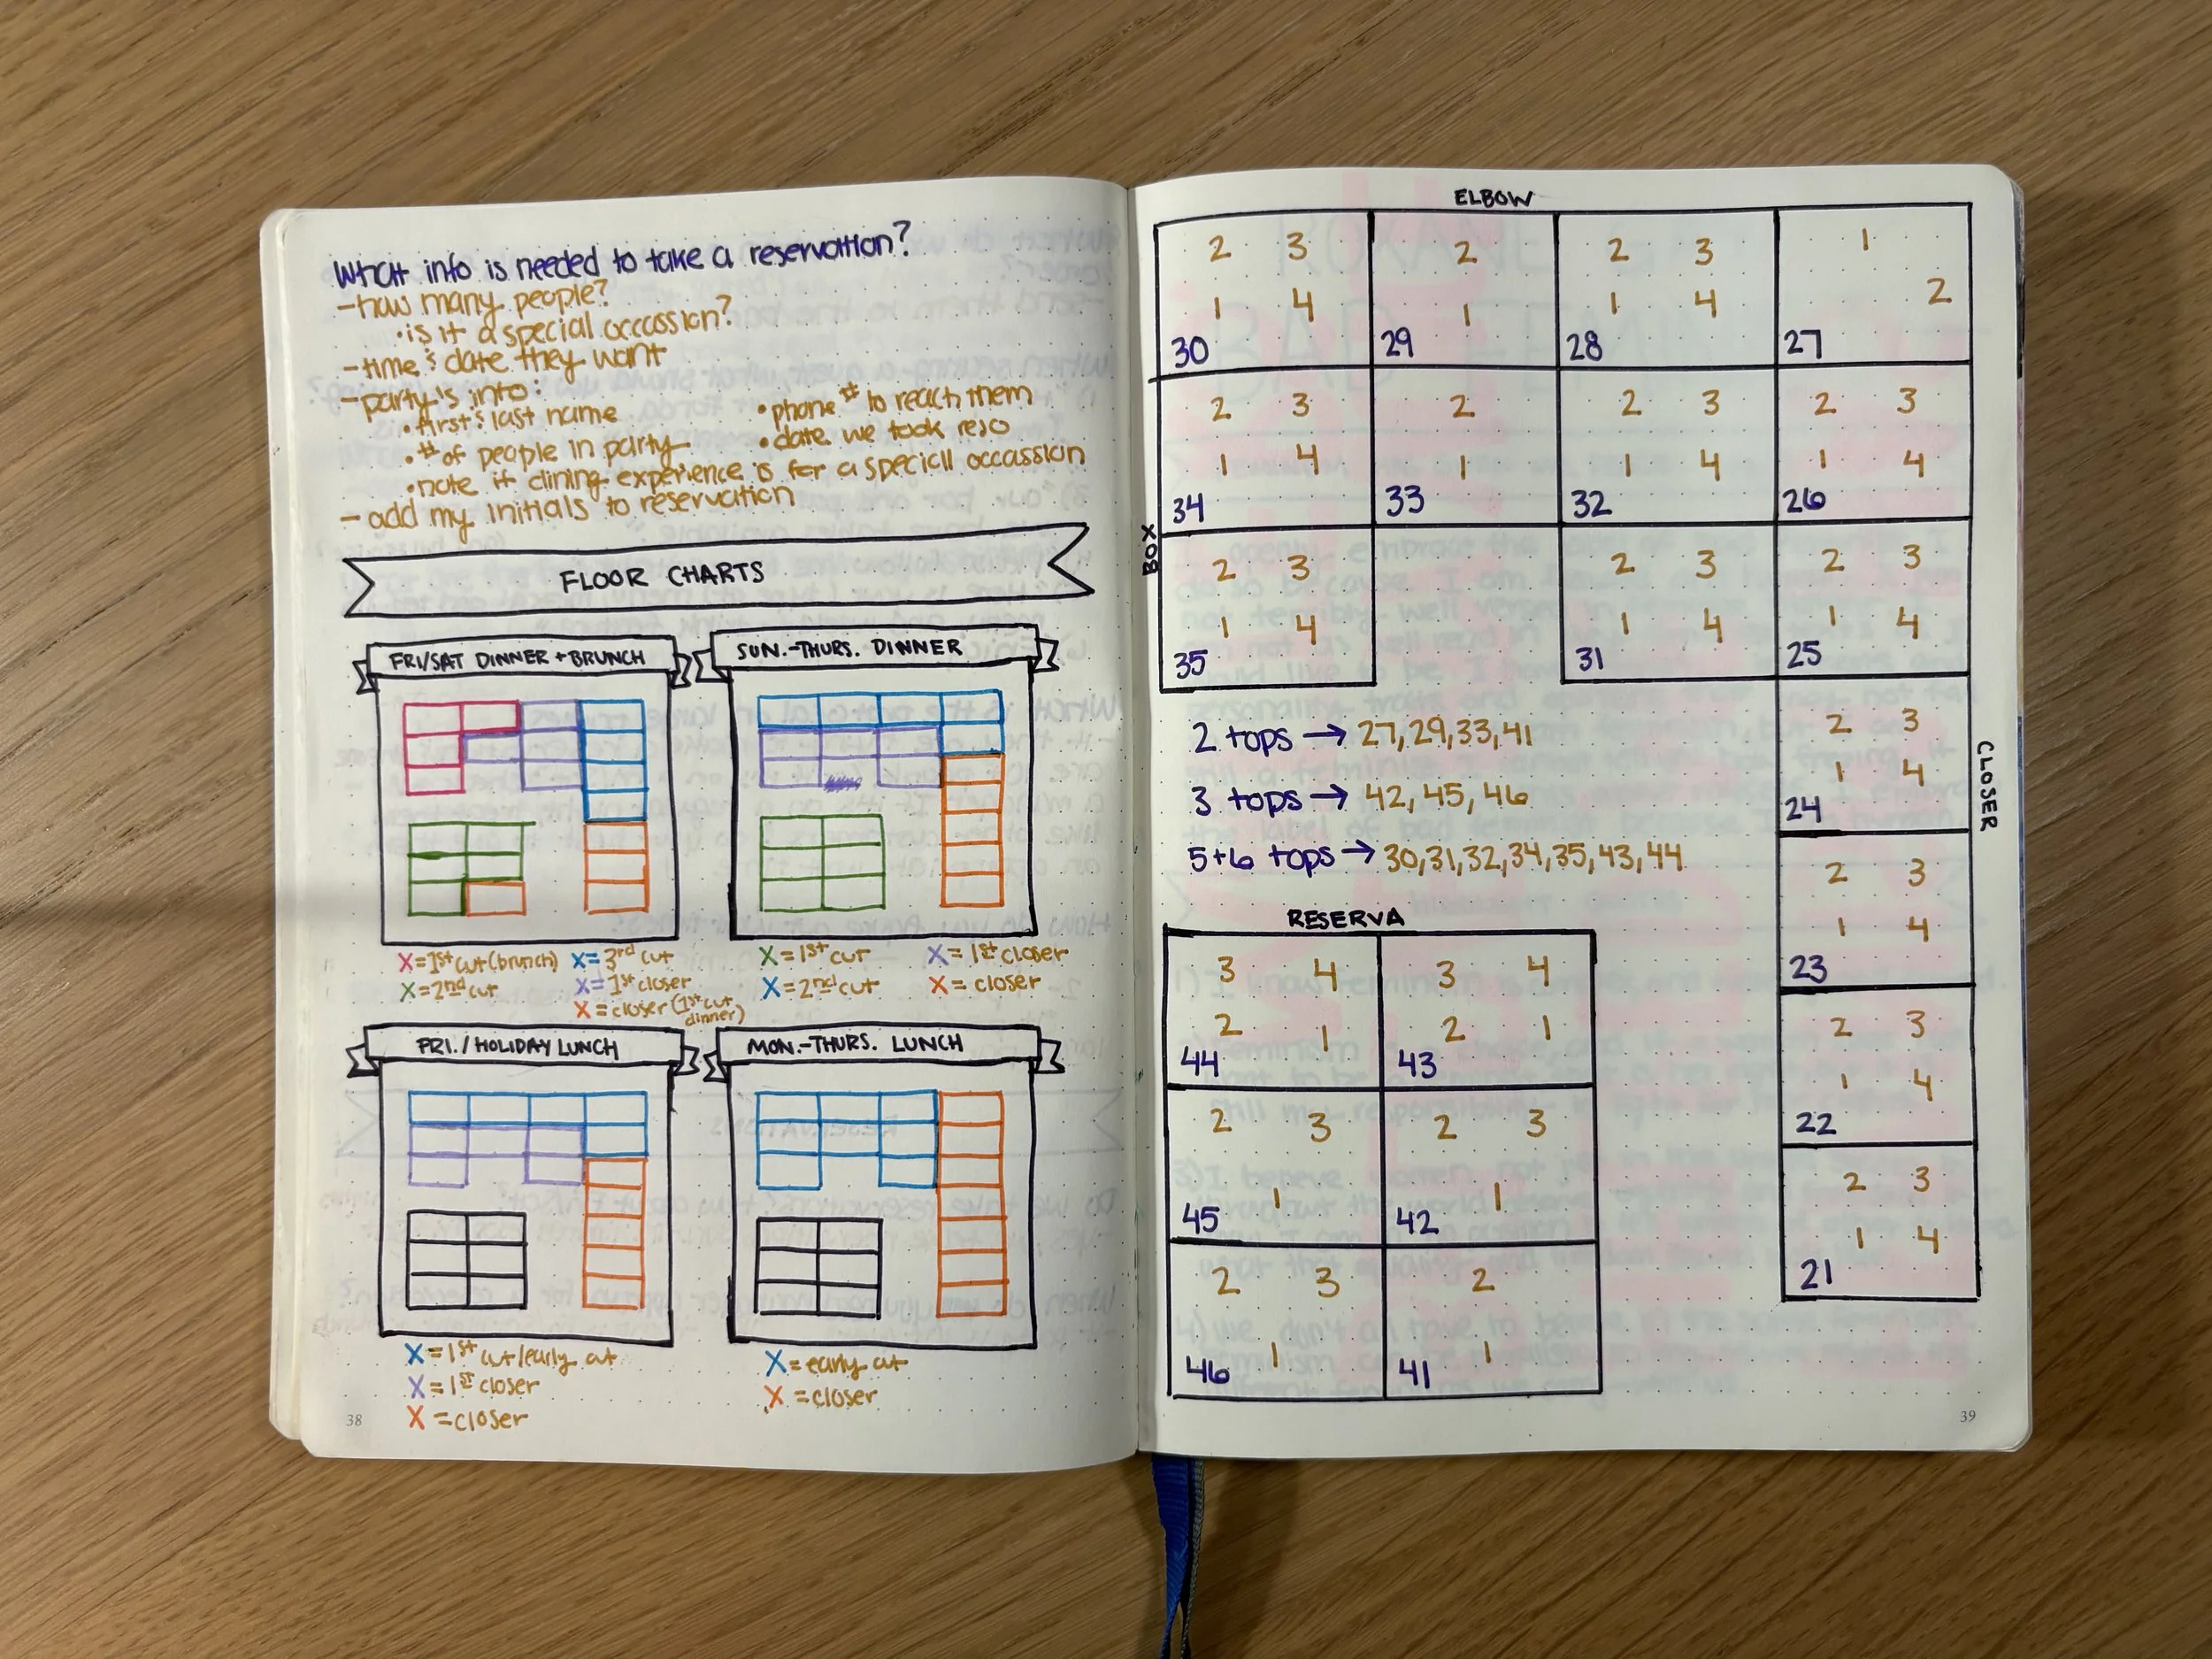 What info is needed to take a reservation?
-how many people?
•is it a special occassion?
-time & date they want
-party's info:
•first & last name
•phone # to reach them
•# of people in party
•date we took reso
•note if dining experience is for a speciall occassion
-add my initials to reservation
FLOOR CHARTS
FRI/SAT DINNER + BRUNCH
SUN.-THURS. DINNER
X=1st cut (brunch)
X=3rd cut
X=2nd cut
X=1st closer
X=closer (1st cut dinner)
X=1st cut
X=1st closer
X=2nd cut
X=closer
FRI./HOLIDAY LUNCH
MON.-THURS. LUNCH
X=1st cut/early cut
X=1st closer
X=closer
X=early cut
X=closer
38
ELBOW
2 3 2 2 3 1
1 4 1 1 4 2
30 29 28 27
2 3 2 2 3 2 3
1 4 1 1 4 1 4
34 33 32 26
BOX
2 3 2 3 2 3
1 4 1 4 1 4
35 31 25
2 tops → 27,29,33,41
3 tops → 42,45,46
5+6 tops → 30,31,32,34,35,43,44
CLOSER
2 3
1 4
24
2 3
1 4
23
2 3
1 4
22
2 3
1 4
21
RESERVA
3 4 3 4
2 1 2 1
44 43
2 3 2 3
1 1
45 42
2 3 2
1 1
46 41
39